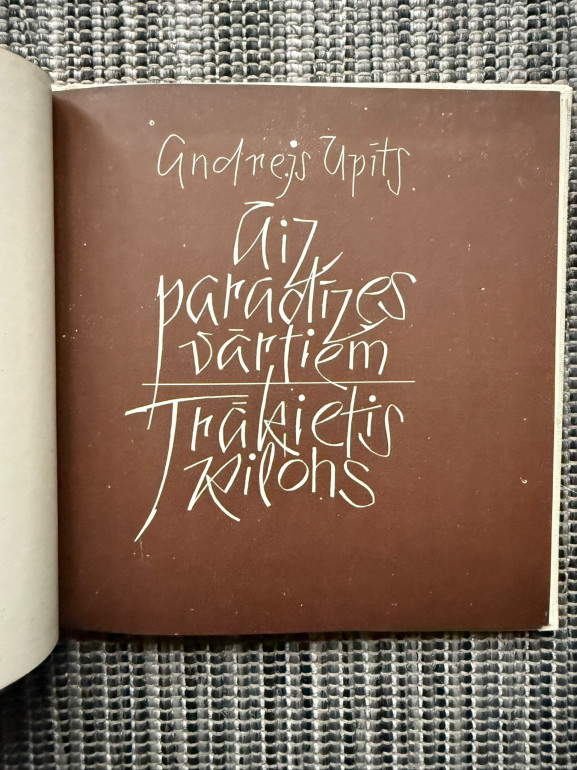 Andrejs Upīts
Aiz
paradīzes
vārtiem
Trāķietis
Kilons